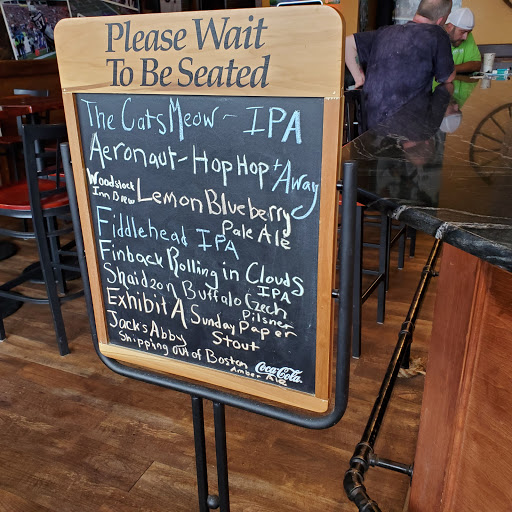 Please Wait
To Be Seated
The Cats Meow - IPA
Aeronaut - Hop Hop + Away
Woodstock
Inn Brew
Lemon Blueberry
Pale Ale
Fiddlehead IPA
Finback Rolling in Clouds
IPA
Buffalo Czech
Pilsner
Exhibit A Sunday Paper
Stout
Jacks Abby
Shipping out of Boston
Amber Ale
Coca-Cola